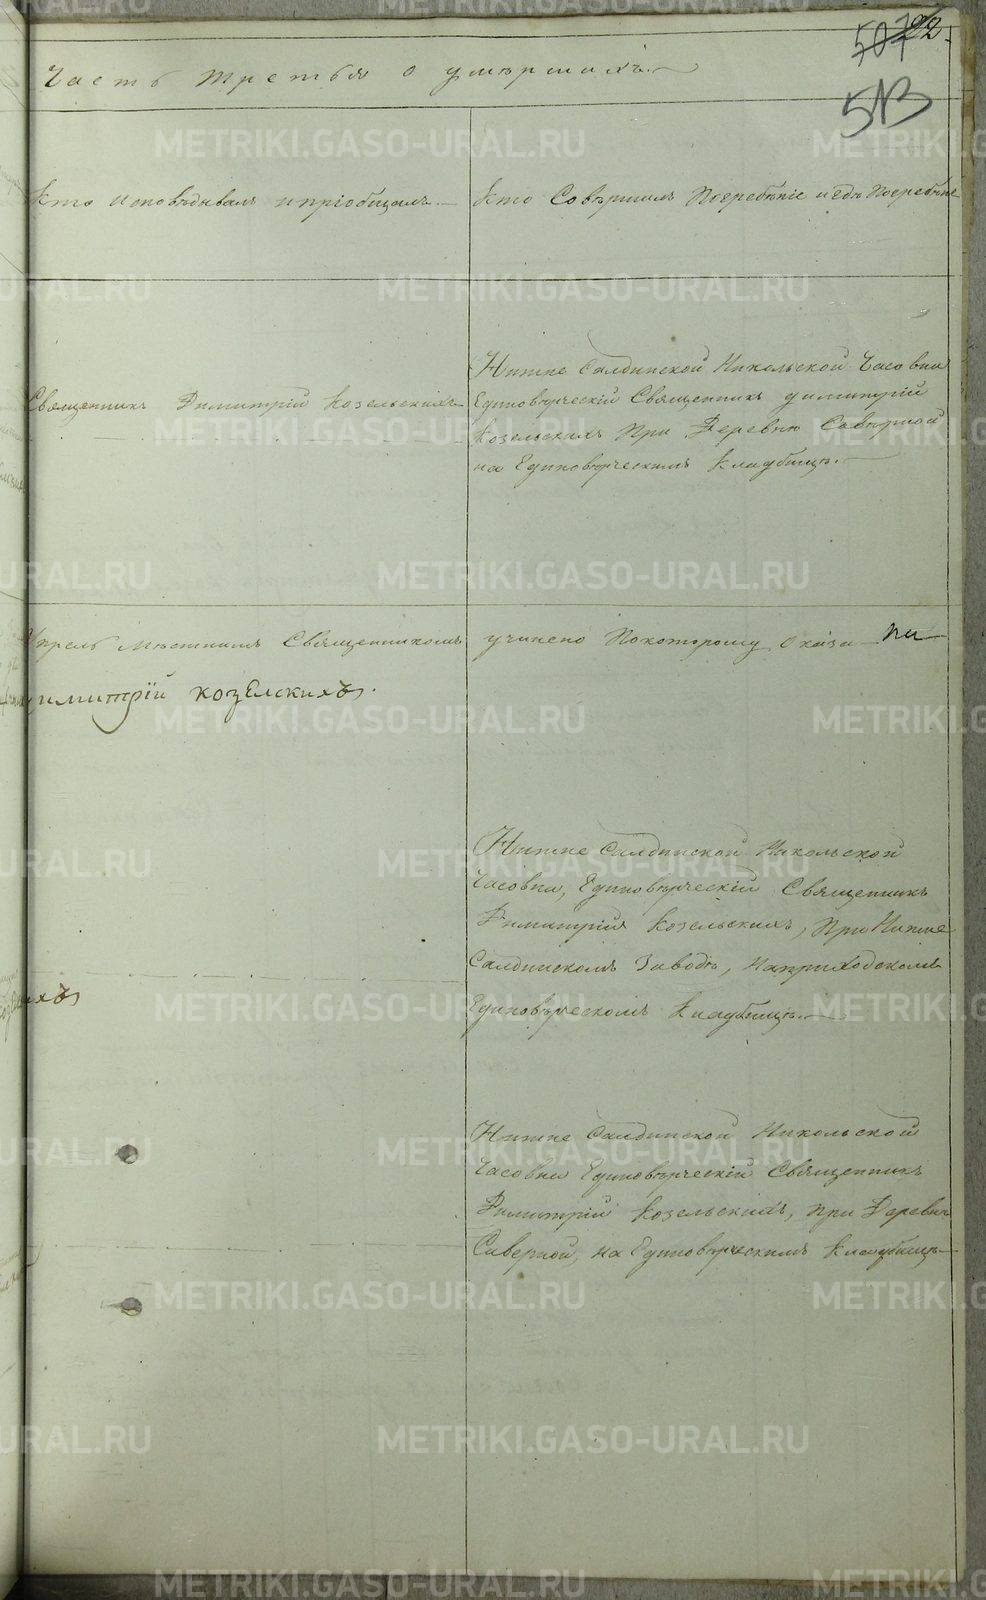 507 22.
513
Часть третья о умершихъ.
Кто исповѣдывалъ и пріобщалъ.
Кто Совершилъ Погребѣніе и гдѣ Погребѣны
Священникъ Димитрій Козельскихъ
Нижне Салдинской Никольской Часовни
Единовѣрческій Священникъ димитрій
Козельскихъ При Деревню Совѣрной
на Единовѣрческимъ Кладбищѣ.
Апрель мѣстнымъ Священникомъ
учинено Покоторому Оказа ли
димитрїй козЕлскихъ.
Нижне Салдинской Никольской
Часовни, Единовѣрческій Священникъ
Димитрій Козельскихъ, При Нижне
Салдинскомъ Заводѣ, На приходскомъ
Единовѣрческомъ Кладбищѣ.
ихъ
Нижне Салдинской Никольской
Часовни Единовѣрческій Священникъ
Димитрій Козельскихъ, При Деревни
Сиверной, на Единовѣрческимъ Кладбищѣ
METRIKI.GASO-URAL.RU